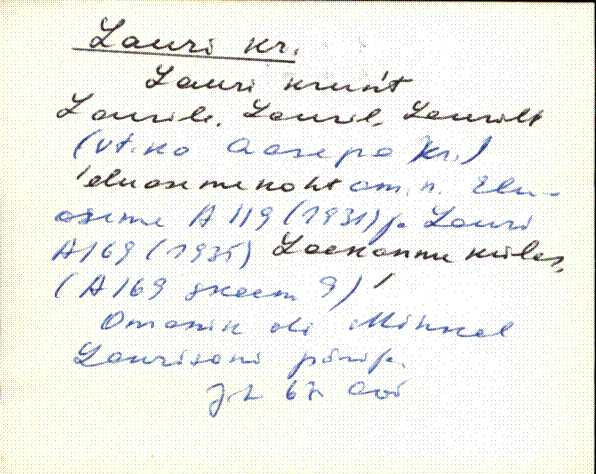 Lauri kr.
Lauri krunt
Laurile, Lauril, Laurilt
(vt. ka Aasepa kr.)
'eluasemekoht om. n. Elu-
aseme A 119 (1931) ja Lauri
A 169 (1935) Laekannu külas,
(A 169 skeem 9)'
Omanik oli Mihkel
Laurisoni pärija.
67